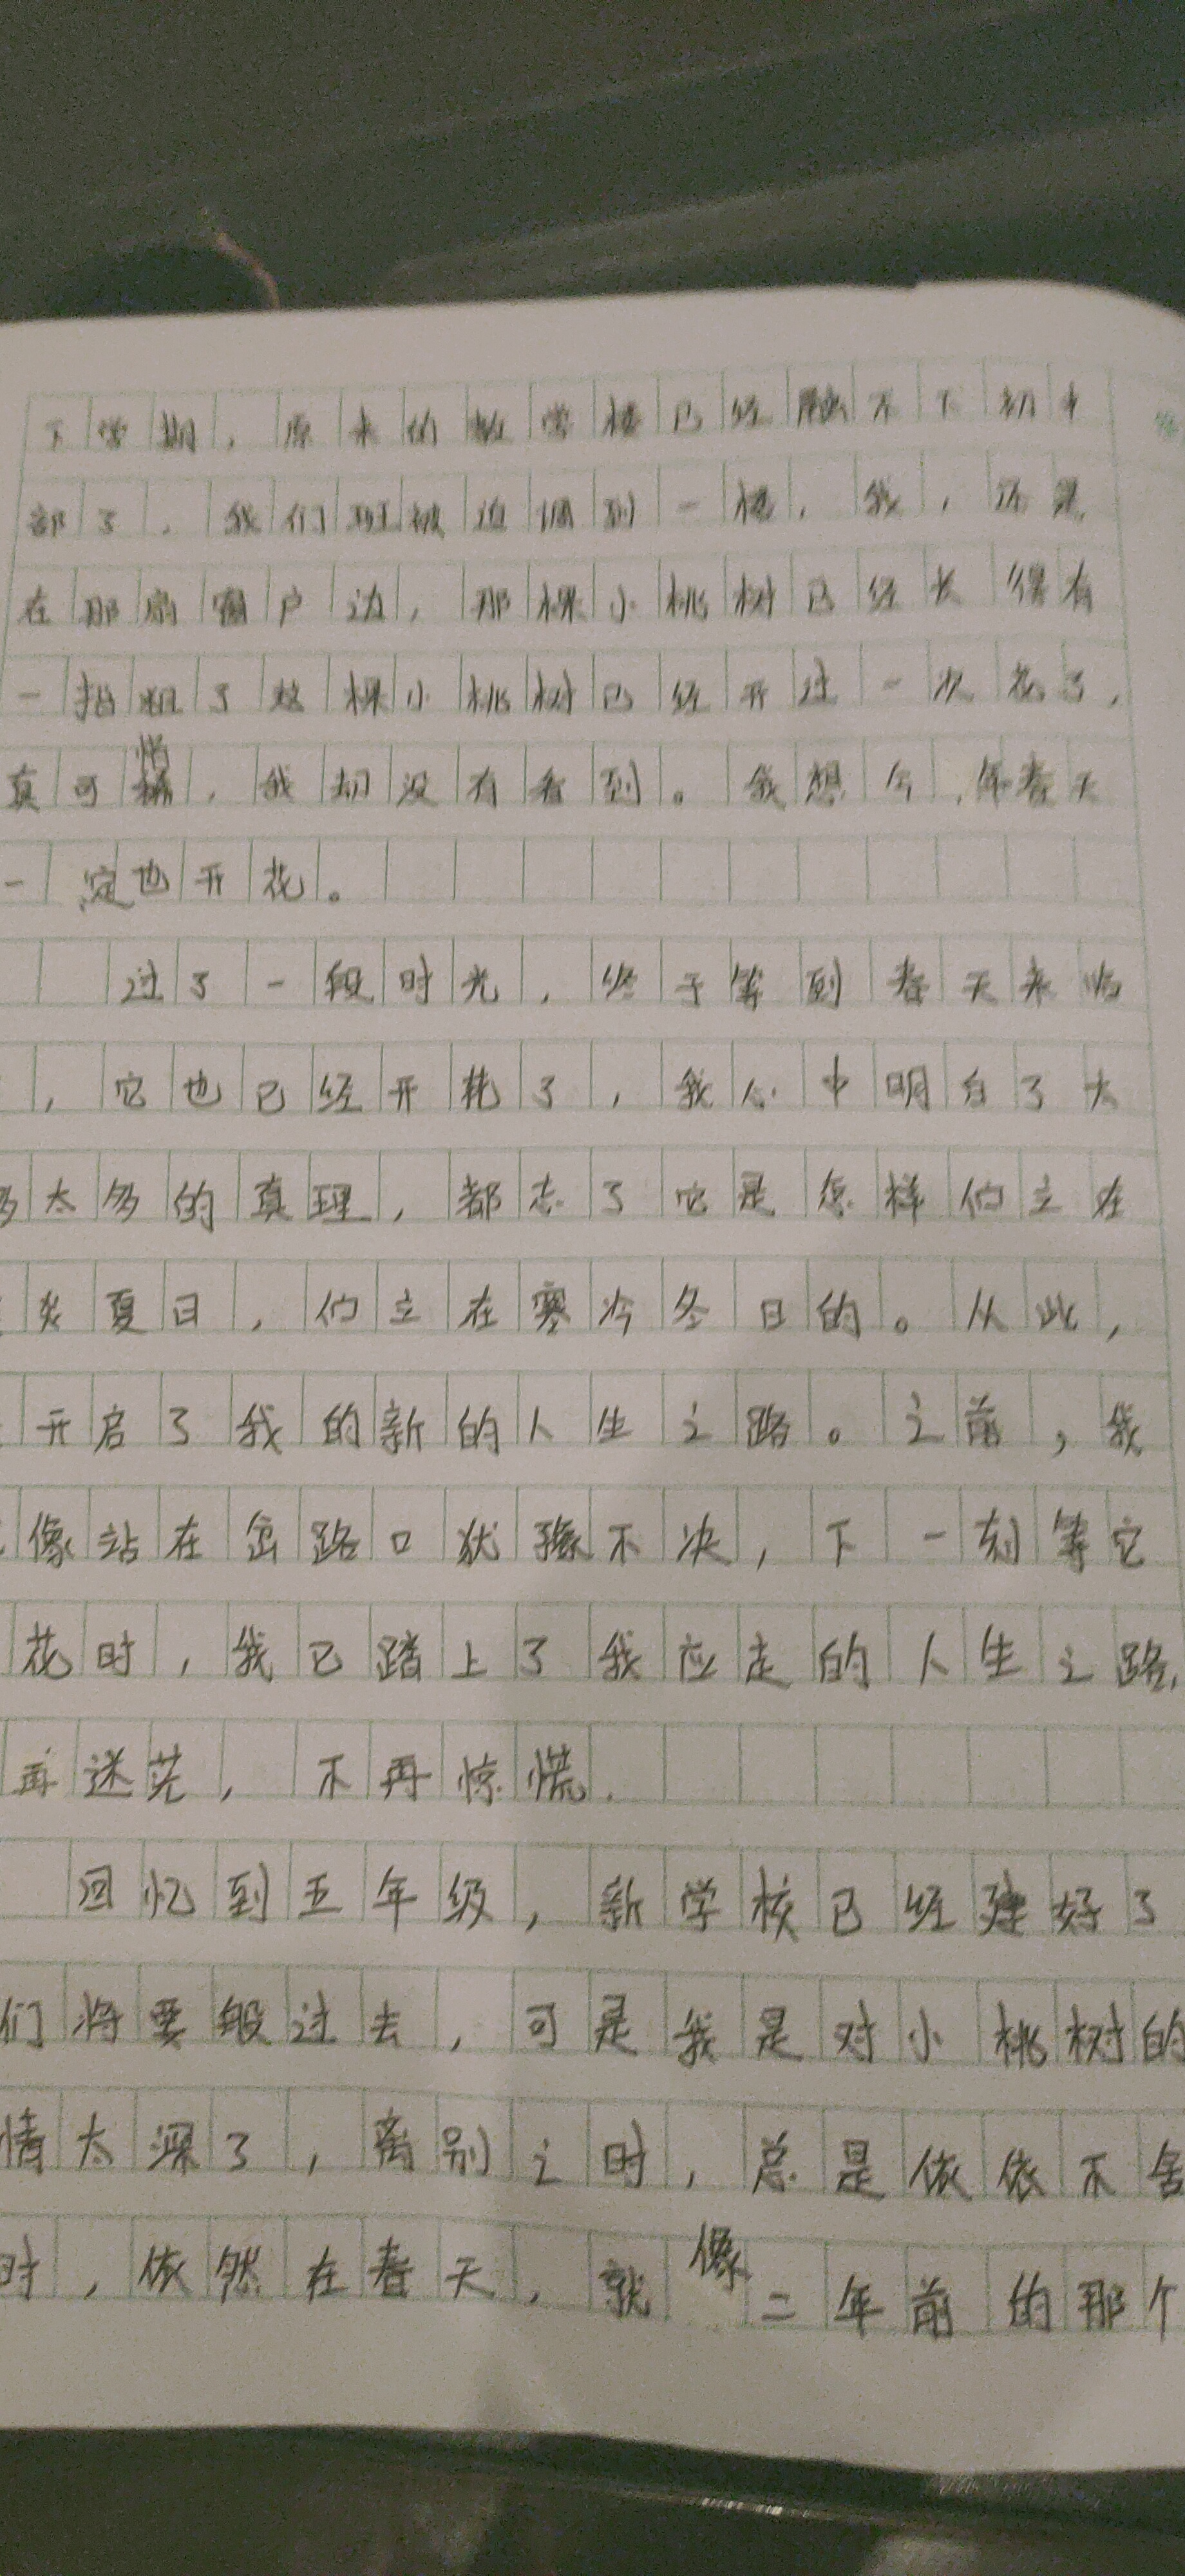 下学期，原来的教学楼已经融不下初中
部了，我们班被迫调到一楼，我，还是
在那扇窗户边，那棵小桃树已经长得有
一指粗了这棵小桃树已经开过一次花了，
真可惜，我却没有看到。我想今年春天
一定也开花。
过了一段时光，终于等到春天来临
，它也已经开花了，我心中明白了太
多太多的真理，都忘了它是怎样伫立在
炎夏日，伫立在寒冷冬日的。从此，
开启了我的新的人生之路。之前，我
像站在岔路口犹豫不决，下一刻等它
花时，我已踏上了我应走的人生之路，
再迷茫，不再惊慌．
回忆到五年级，新学校已经建好了
们将要般过去，可是我是对小桃树的
情太深了，离别之时，总是依依不舍
时，依然在春天，就像二年前的那个